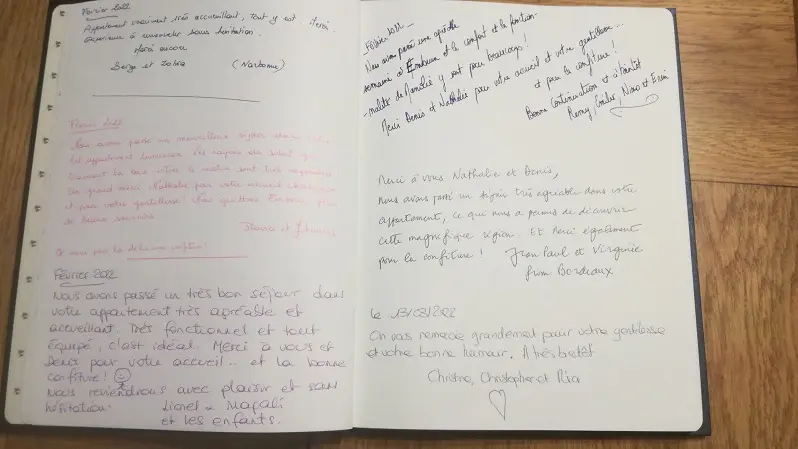 Février 2022
Appartement vraiment très accueillant, Tout y est.
Expérience à renouveler sans hésitation.
Merci encore
Serge et (Narbonne)
Février 2022
Nous avons passé un merveilleux séjour dans
cet appartement lumineux. Les rayons du soleil qui
la baie vitrée le matin sont très
Un grand merci Nathalie pour votre accueil chaleureux
et pour votre gentillesse. Nous quittons Embrun plein
de bons souvenirs.
et
Et merci pour la délicieuse confiture!
Février 2022
Nous avons passé un très bon séjour dans
votre appartement très agréable et
accueillant. Très fonctionnel et tout
équipé, c'est idéal. Merci à vous et
Denis pour votre accueil.. et la bonne
confiture!
Nous reviendrons avec plaisir et sans
hésitation.
Lionel Magali
et les enfants.
Février 2022
Nous avons passé une agréable
semaine à Embrun et le confort et le position-
y sont pour beaucoup!
Merci Denis et Nathalie pour votre accueil et votre gentillesse...
et pour la confiture!
Bonne continuation et à bientôt
Remy, Emilie, Nino et
Merci à vous Nathalie et Denis,
nous avons passé un séjour très agréable dans votre
appartement, ce qui nous a permis de découvrir
cette magnifique région. Et merci également
pour la confiture! Jean Paul et Virginie
from Bordeaux
le 13/03/2022
On vous remercie grandement pour votre gentillesse
et votre bonne humeur. A très bientôt
Christine, Christopher et Ria